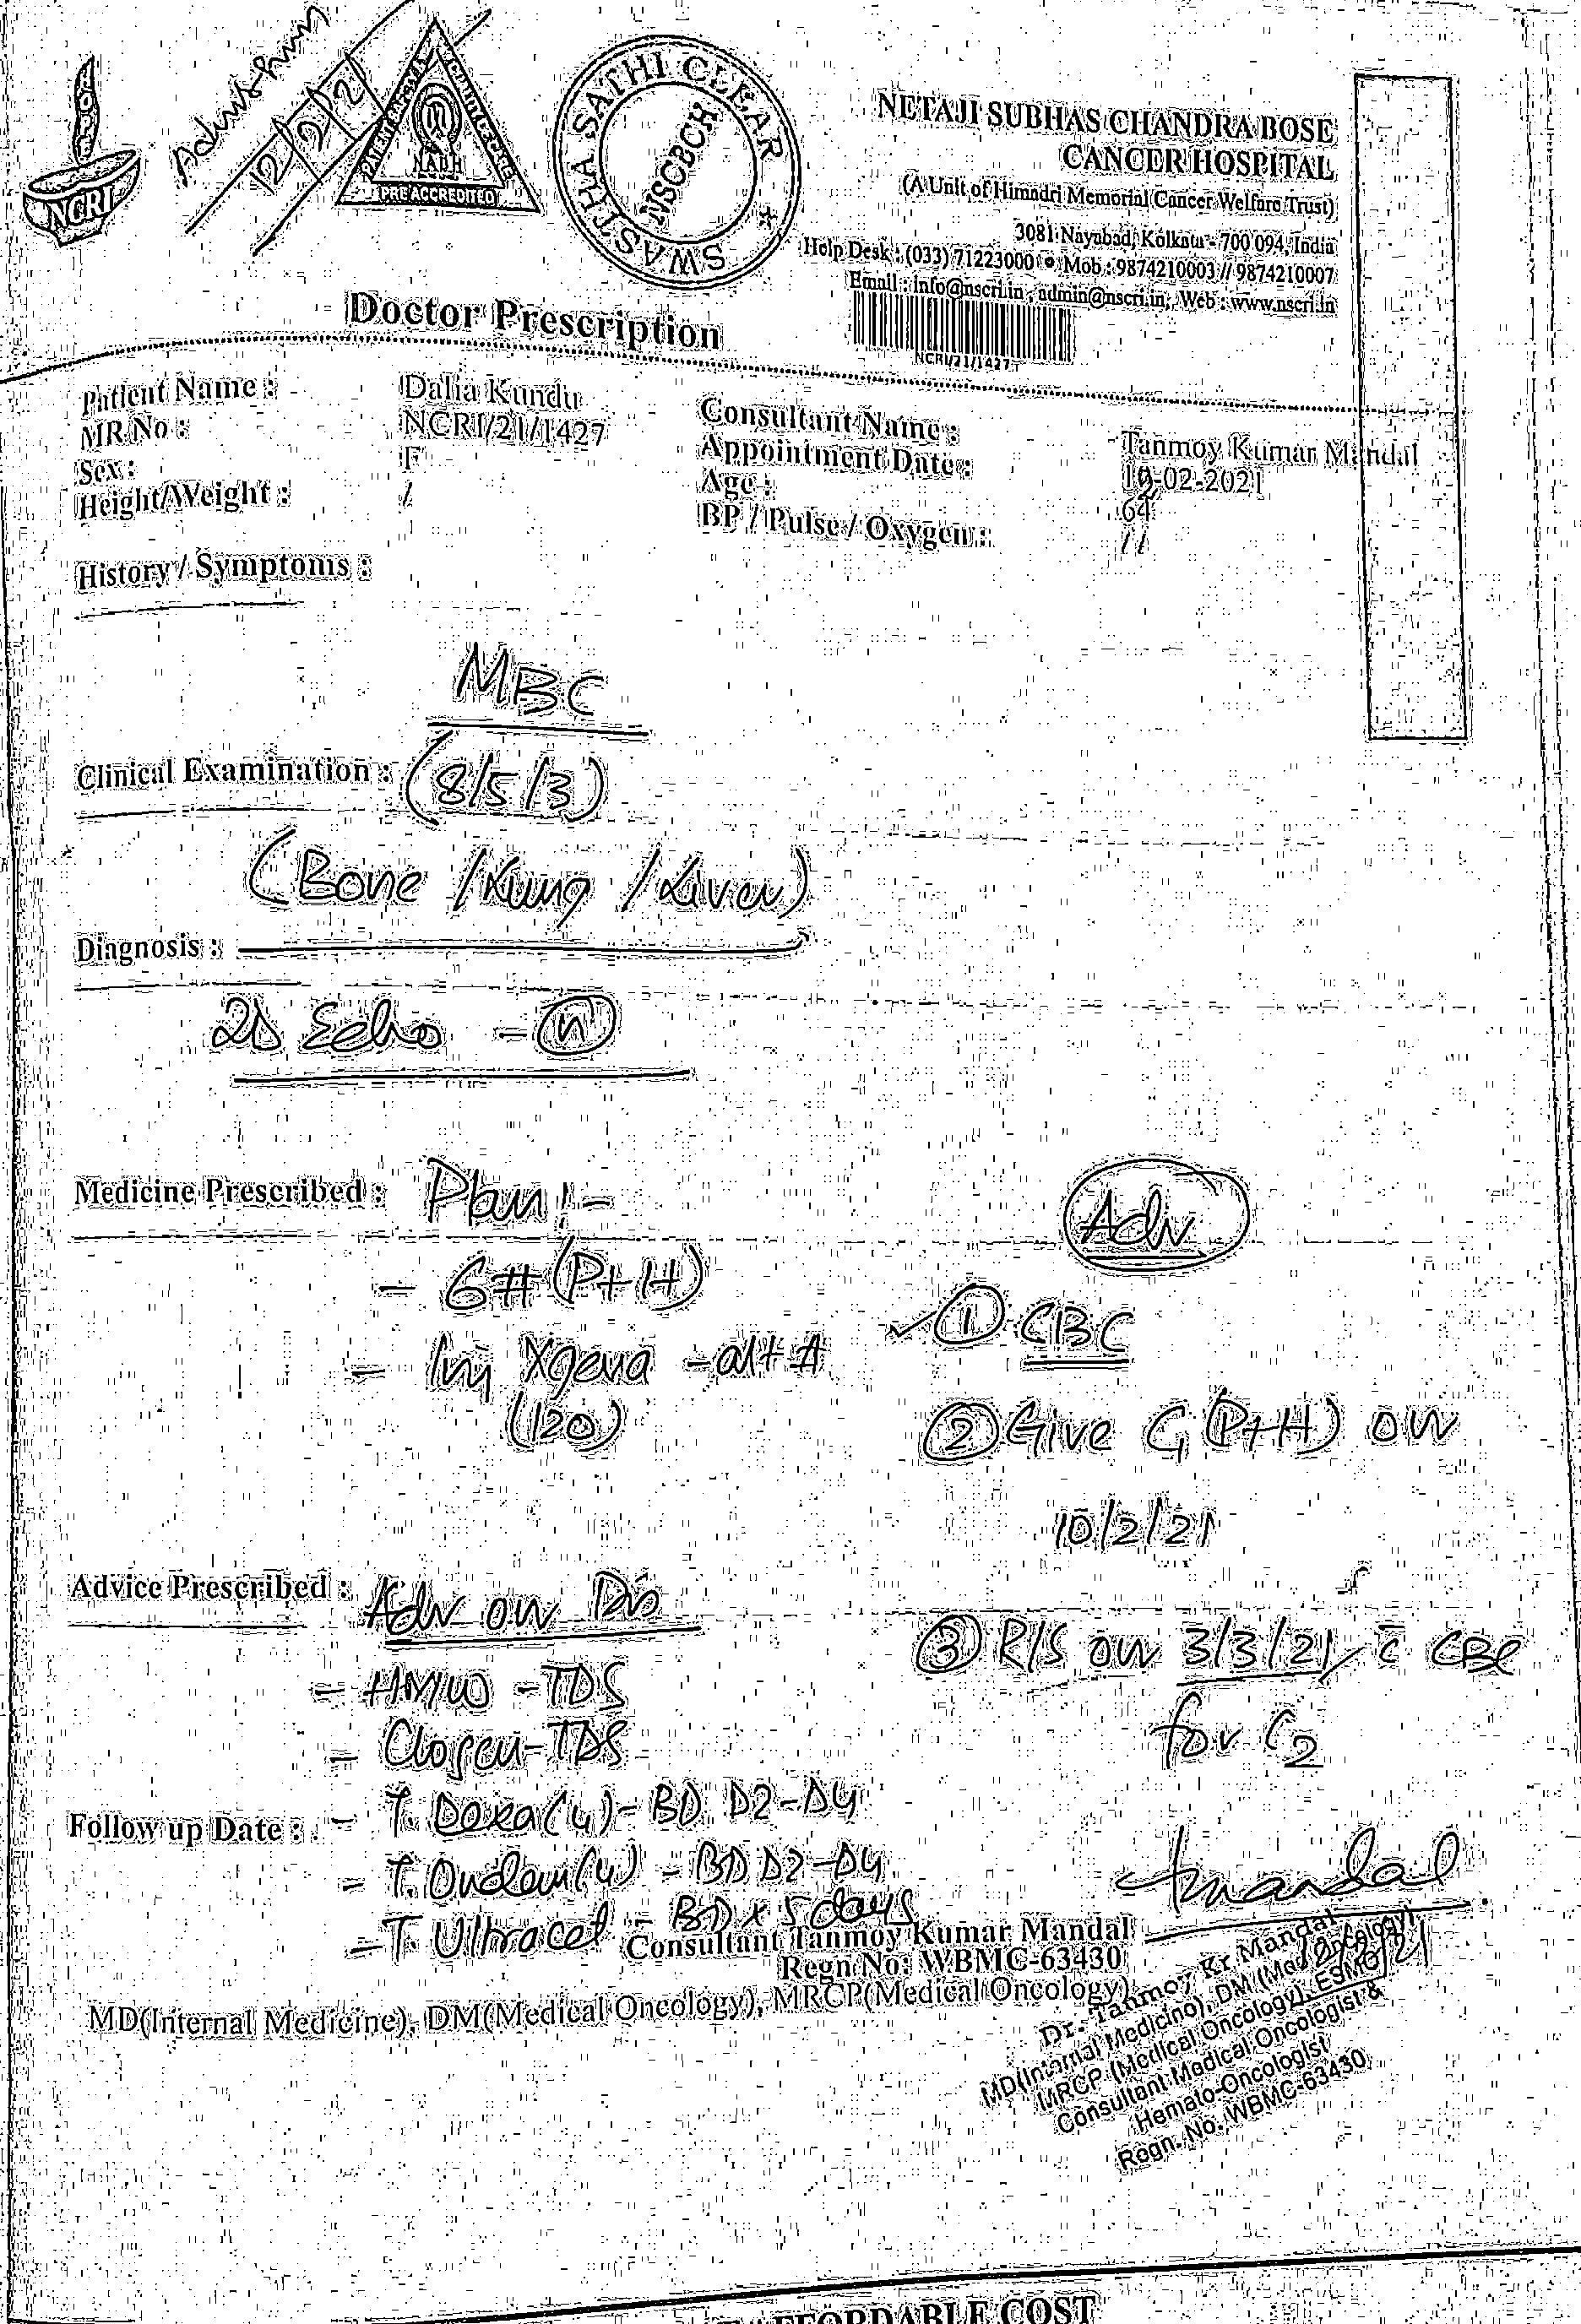 Admission
12/2/21
HOPE
NCRI
NABH
PRE ACCREDITED
SWASTHA SATHI CLEAR *
NSCBCH
NETAJI SUBHAS CHANDRA BOSE
CANCER HOSPITAL
(A Unit of Himadri Memorial Cancer Welfare Trust)
3081 Nayabad, Kolkata - 700 094, India
Help Desk : (033) 71223000 • Mob : 9874210003 // 9874210007
Email : info@nscri.in, admin@nscri.in, Web : www.nscri.in
NCRI/21/1427
Doctor Prescription
Patient Name : Dalia Kundu
MR No : NCRI/21/1427
Sex : F
Height/Weight : /
Consultant Name : Tanmoy Kumar Mandal
Appointment Date : 10-02-2021
Age : 64
BP / Pulse / Oxygen : / /
History / Symptoms :
MBC
Clinical Examination : (8/5/3)
(Bone / Lung / Liver)
Diagnosis :
2D Echo - (N)
Medicine Prescribed : Plan :-
- 6# (P+H)
- Inj Xgeva - alt #
(120)
Adv
① CBC
② Give C1 (P+H) on
10/2/21
③ R/S on 3/3/21 c̄ CBC
for C2
Advice Prescribed : Adv on D/s
- HMW - TDS
- Clogen - TDS
Follow up Date : - T. Dexa (4) - BD D2-D4
- T. Ondem (4) - BD D2-D4
- T. Ultracet - BD x 5 days
Consultant Tanmoy Kumar Mandal
Regn No: WBMC-63430
MD(Internal Medicine), DM(Medical Oncology), MRCP(Medical Oncology)
Tmandal
Dr. Tanmoy Kr Mandal
MD(Internal Medicine), DM (Med Oncology)
MRCP (Medical Oncology), ESMO
Consultant Medical Oncologist &
Hemato-Oncologist
Regn. No. WBMC-63430
AFFORDABLE COST